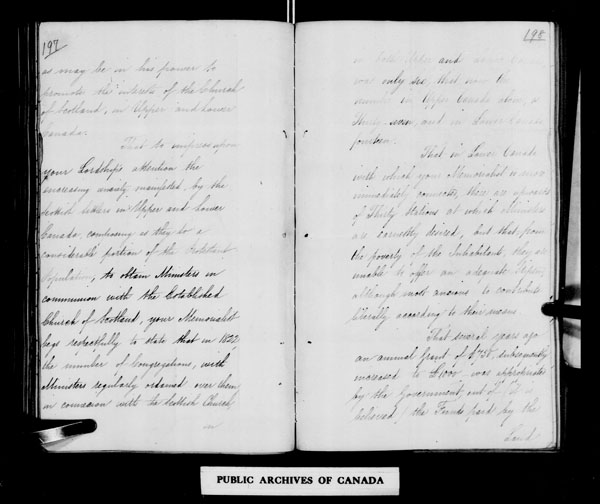 197
as may be in his power to
promote the interests of the Church
of Scotland, in Upper and Lower
Canada.
That to impress upon
your Lordships attention the
increasing anxiety manifested by the
Scottish settlers in Upper and Lower
Canada, composing as they do a
considerable portion of the Protestant
Population, to obtain Ministers in
communion with the Established
Church of Scotland, your Memorialist
begs respectfully to state that in 1822,
the number of Congregations, with
Ministers regularly ordained over them
in connexion with the Scottish Church
in
198
in both Upper and Lower Canada
was only six that now the
number in Upper Canada alone, is
Thirty seven, and in Lower Canada
fourteen.
That in Lower Canada
with which your Memorialist is more
immediately connected, there are upwards
of Thirty Stations at which Ministers
are earnestly desired, and that from
the poverty of the Inhabitants, they are
unable to offer an adequate Stipend,
although most anxious to contribute
liberally according to their means.
That several years ago
an annual Grant of £750, subsequently
increased to £1000 was appropriated
by the Government, out of (it is
believed) the Funds paid by the
Land
PUBLIC ARCHIVES OF CANADA